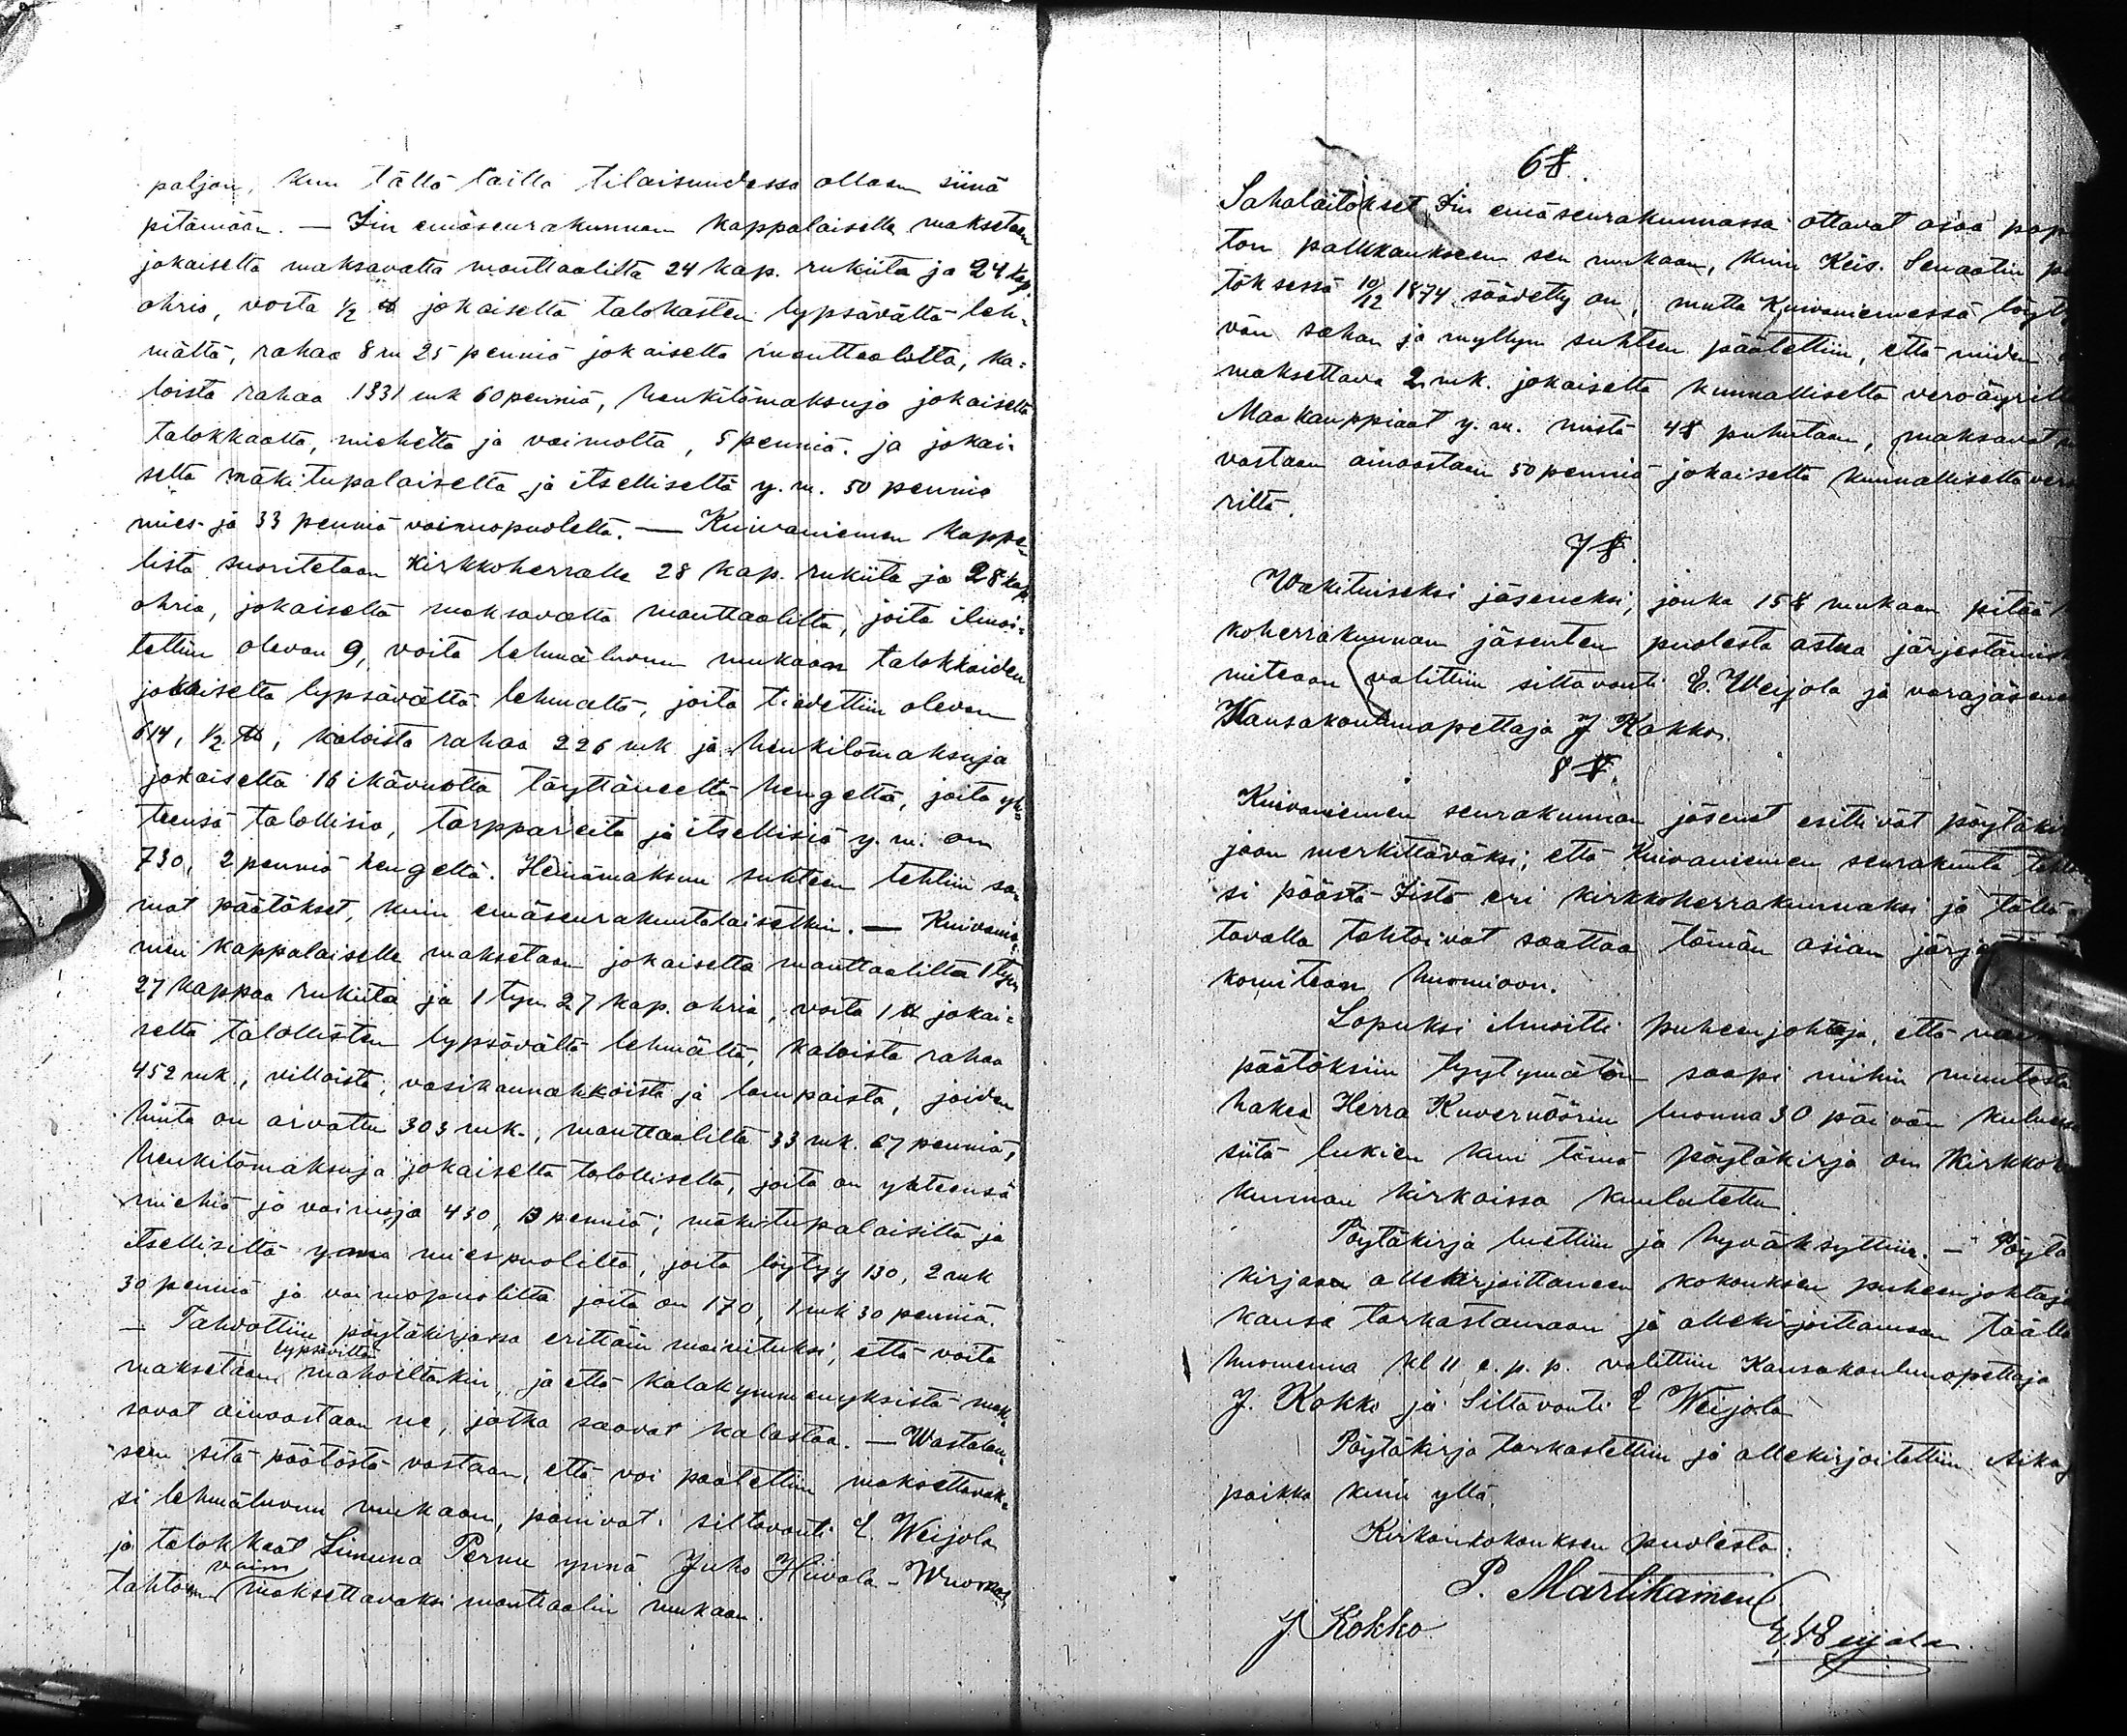 paljon, kun tällä lailla tilaisuudessa ollaan siinä
pitämään. — Iin emäseurakunnan kappalaiselle maksetaan
jokaiselta maksavalta manttaalilta 24 kap. rukiita ja 24 kap.
ohria, voita ½ ℔ jokaiselta talokasten lypsävältä leh-
mältä, rahaa 8 m 25 penniä jokaiselta manttaalilta, ka-
loista rahaa 1331 mk 60 penniä, henkilömaksuja jokaiselta
talokkaalta, mieheltä ja vaimolta, 5 penniä. ja jokai-
selta mäkitupalaiselta ja itselliseltä y. m. 50 penniä
mies- ja 33 penniä vaimopuolelta. — Kuivaniemen kappe-
lista suoritetaan Kirkkoherralle 28 kap. rukiita ja 28 kap.
ohria, jokaiselta maksavalta manttaalilta, joita ilmoi-
tettiin olevan 9, voita lehmäluvun mukaan talokkaiden
jokaiselta lypsävältä lehmältä, joita tiedettiin olevan
614, ½ ℔, kaloista rahaa 226 mk ja henkilömaksuja
jokaiselta 16 ikävuotta täyttäneeltä hengeltä, joita yh-
teensä talollisia, torppareita ja itsellisiä y. m. on
730, 2 penniä hengeltä. Heinämaksun suhteen tehtiin sa-
mat päätökset, kuin emäseurakuntalaisetkin. — Kuivanie-
men kappalaiselle maksetaan jokaiselta manttaalilta 1 tyn
27 kappaa rukiita ja 1 tyn 27 kap. ohria, voita 1 ℔ jokai-
selta talollisten lypsävältä lehmältä, kaloista rahaa
452 mk., villoista, vasikannahkoista ja lampaista, joiden
hinta on arvattu 303 mk., manttaalilta 33 mk. 67 penniä,
henkilömaksuja jokaiselta talolliselta, joita on yhteensä
miehiä ja vaimoja 430, 13 penniä; mäkitupalaisilta ja
itsellisiltä y.m. miespuolilta, joita löytyy 130, 2 mk
30 penniä ja vaimopuolilta joita on 170, 1 mk 30 penniä.
— Tahdottiin pöytäkirjassa erittäin mainituksi, että voita
lypsäviltä
maksetaan mahoiltakin, ja että kalakymmenyksistä mak-
savat ainoastaan ne, jotka saavat kalastaa. — Wastalau-
seen sitä päätöstä vastaan, että voi päätettiin maksettavak-
si lehmäluvun mukaan, panivat siltavouti E. Weijola
ja talokkaat Simuna Pernu ynnä Juho Hiivala-Wuornos
voim
tahtoen maksettavaksi manttaalin mukaan.
6 §.
Sahalaitokset Iin emäseurakunnassa ottavat osaa pap
ton palkkaukseen sen mukaan, kuin Keis. Senaatin pä
töksessä 10/12 1874 säädetty on, mutta Kuivaniemessä löyt
vän sahan ja myllyn suhteen päätettiin, että niiden
maksettava 2 mk. jokaiselta kunnalliselta veroäyrilt
Maakauppiaat y. m. mistä 4 § puhutaan, maksavat
vastaan ainoastaan 50 penniä jokaiselta kunnalliselta verä
riltä.
7 §.
Wakituiseksi jäseneksi, jonka 15 § mukaan pitää
koherrakunnan jäsenten puolesta astua järjestämis
miteaan valittiin siltavouti E. Weijola ja varajäsene
Kansakoulunopettaja J Kokko.
8 §.
Kuivaniemen seurakunnan jäsenet esittivät pöytäkir
jaan merkittäväksi, että Kuivaniemen seurakunta taht
si päästä Iistä eri kirkkoherrakunnaksi ja tällä
tavalla tahtoivat saattaa tämän asian järje
komitean huomioon.
Lopuksi ilmoitti puheenjohtaja, että
päätöksiin tyytymätön saapi niihin muutosta
hakea Herra Kuvernöörin luonna 30 päivän kulues
siitä lukien kun tämä pöytäkirja on Kirkkoh
kunnan kirkoissa kuulutettu.
Pöytäkirja luettiin ja hyväksyttiin. — Pöytä
kirjaa allekirjoittaneen kokouksen puheenjohtaja
kansa tarkastamaan ja allekirjoittamaan täällä
huomenna kl 11 e. p. p. valittiin Kansakoulunopettaja
J. Kokko ja Siltavouti E Weijola
Pöytäkirja tarkastettiin ja allekirjoitettiin Aika j
paikka kuin yllä.
Kirkonkokouksen puolesta:
P. Martikainen
J. Kokko
E. Weijola